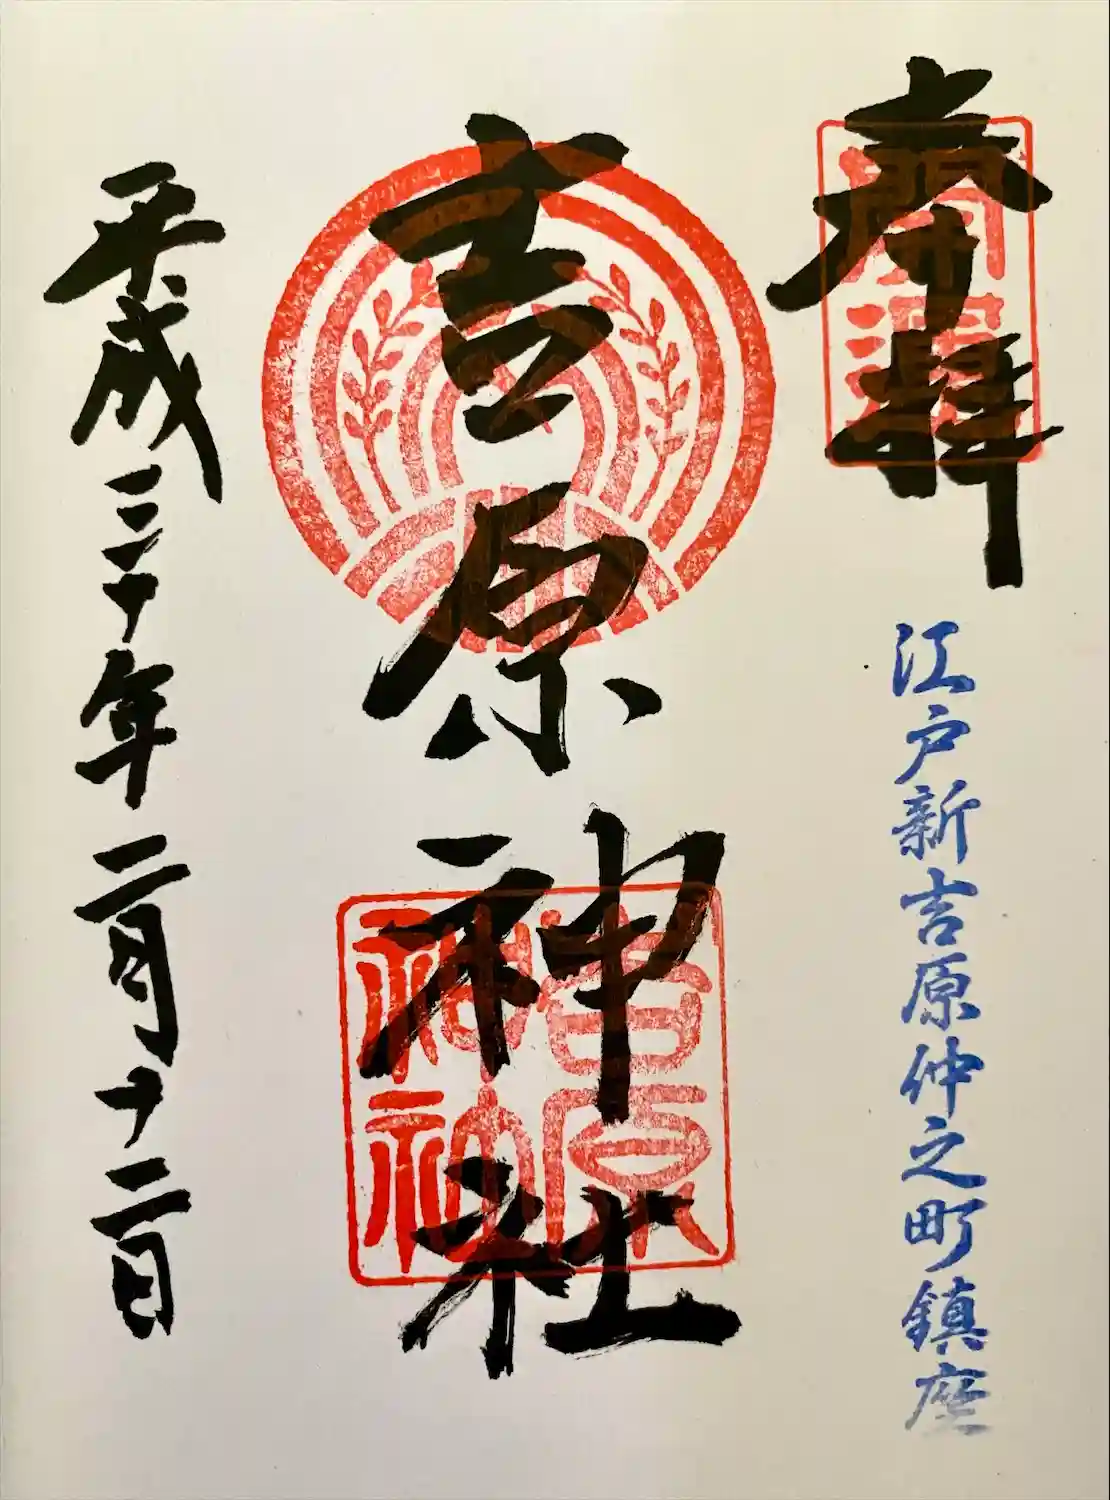 奉拝
開運
江戸新吉原仲之町鎮座
吉原神社
吉原
平成三十年二月十二日